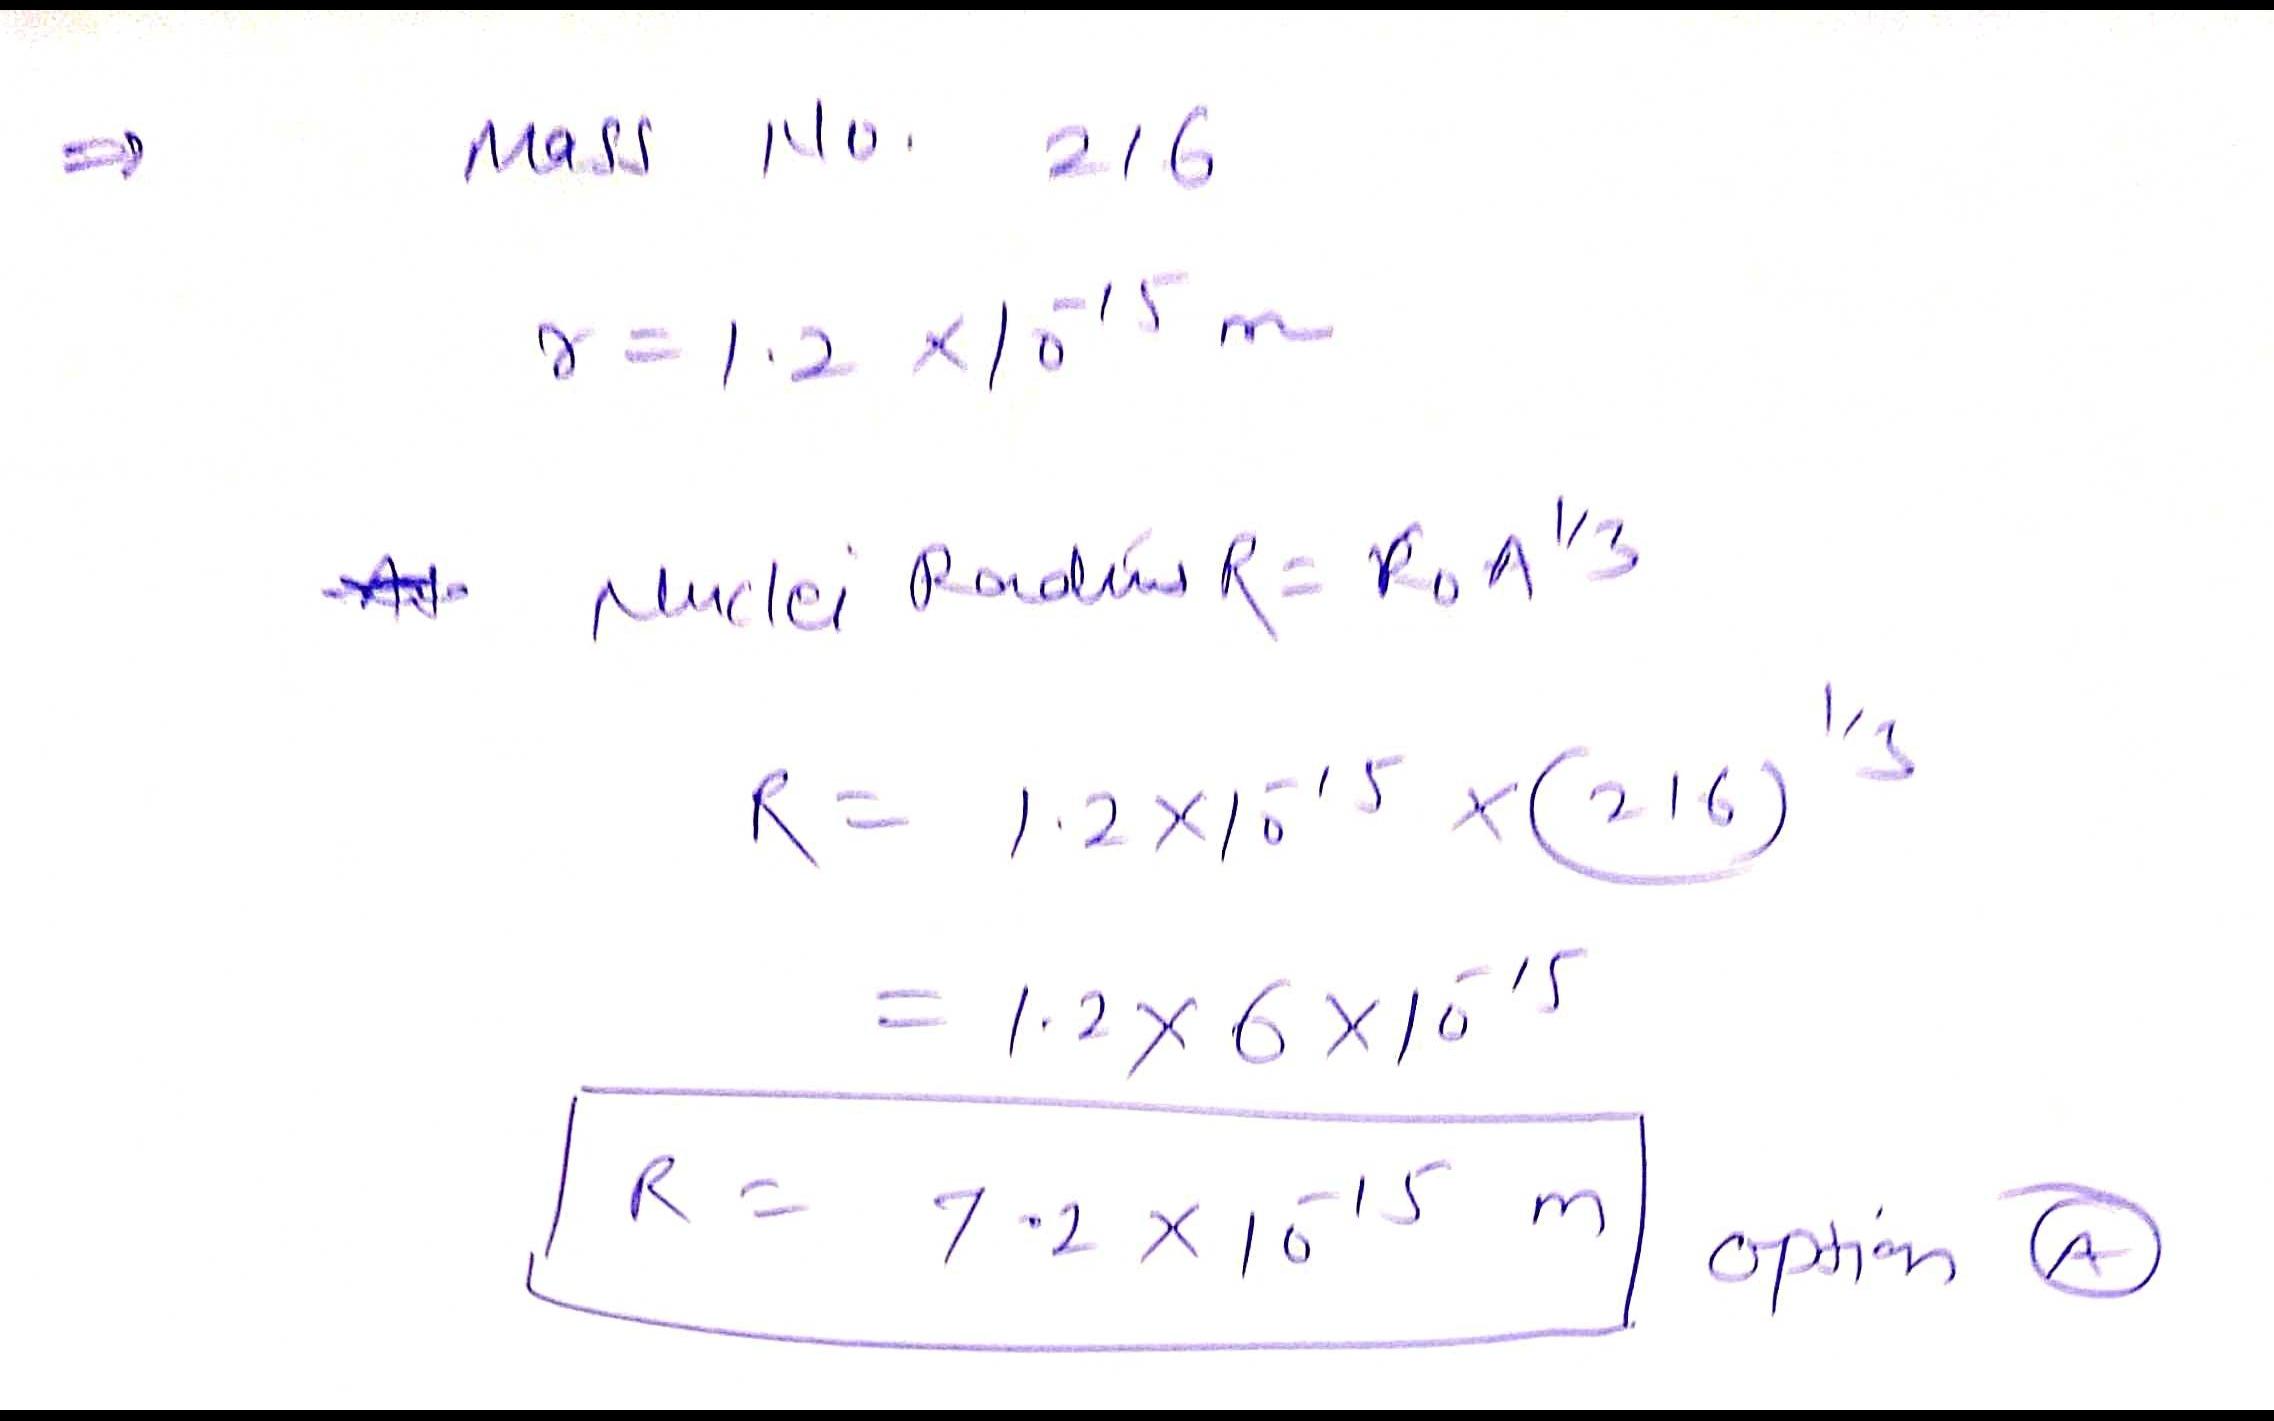 ⇒ Mass No. 216
r = 1.2 × 10⁻¹⁵ m
Nuclei Radius R = R₀ A^1/3
R = 1.2 × 10⁻¹⁵ × (216)^1/3
= 1.2 × 6 × 10⁻¹⁵
R = 7.2 × 10⁻¹⁵ m option (A)